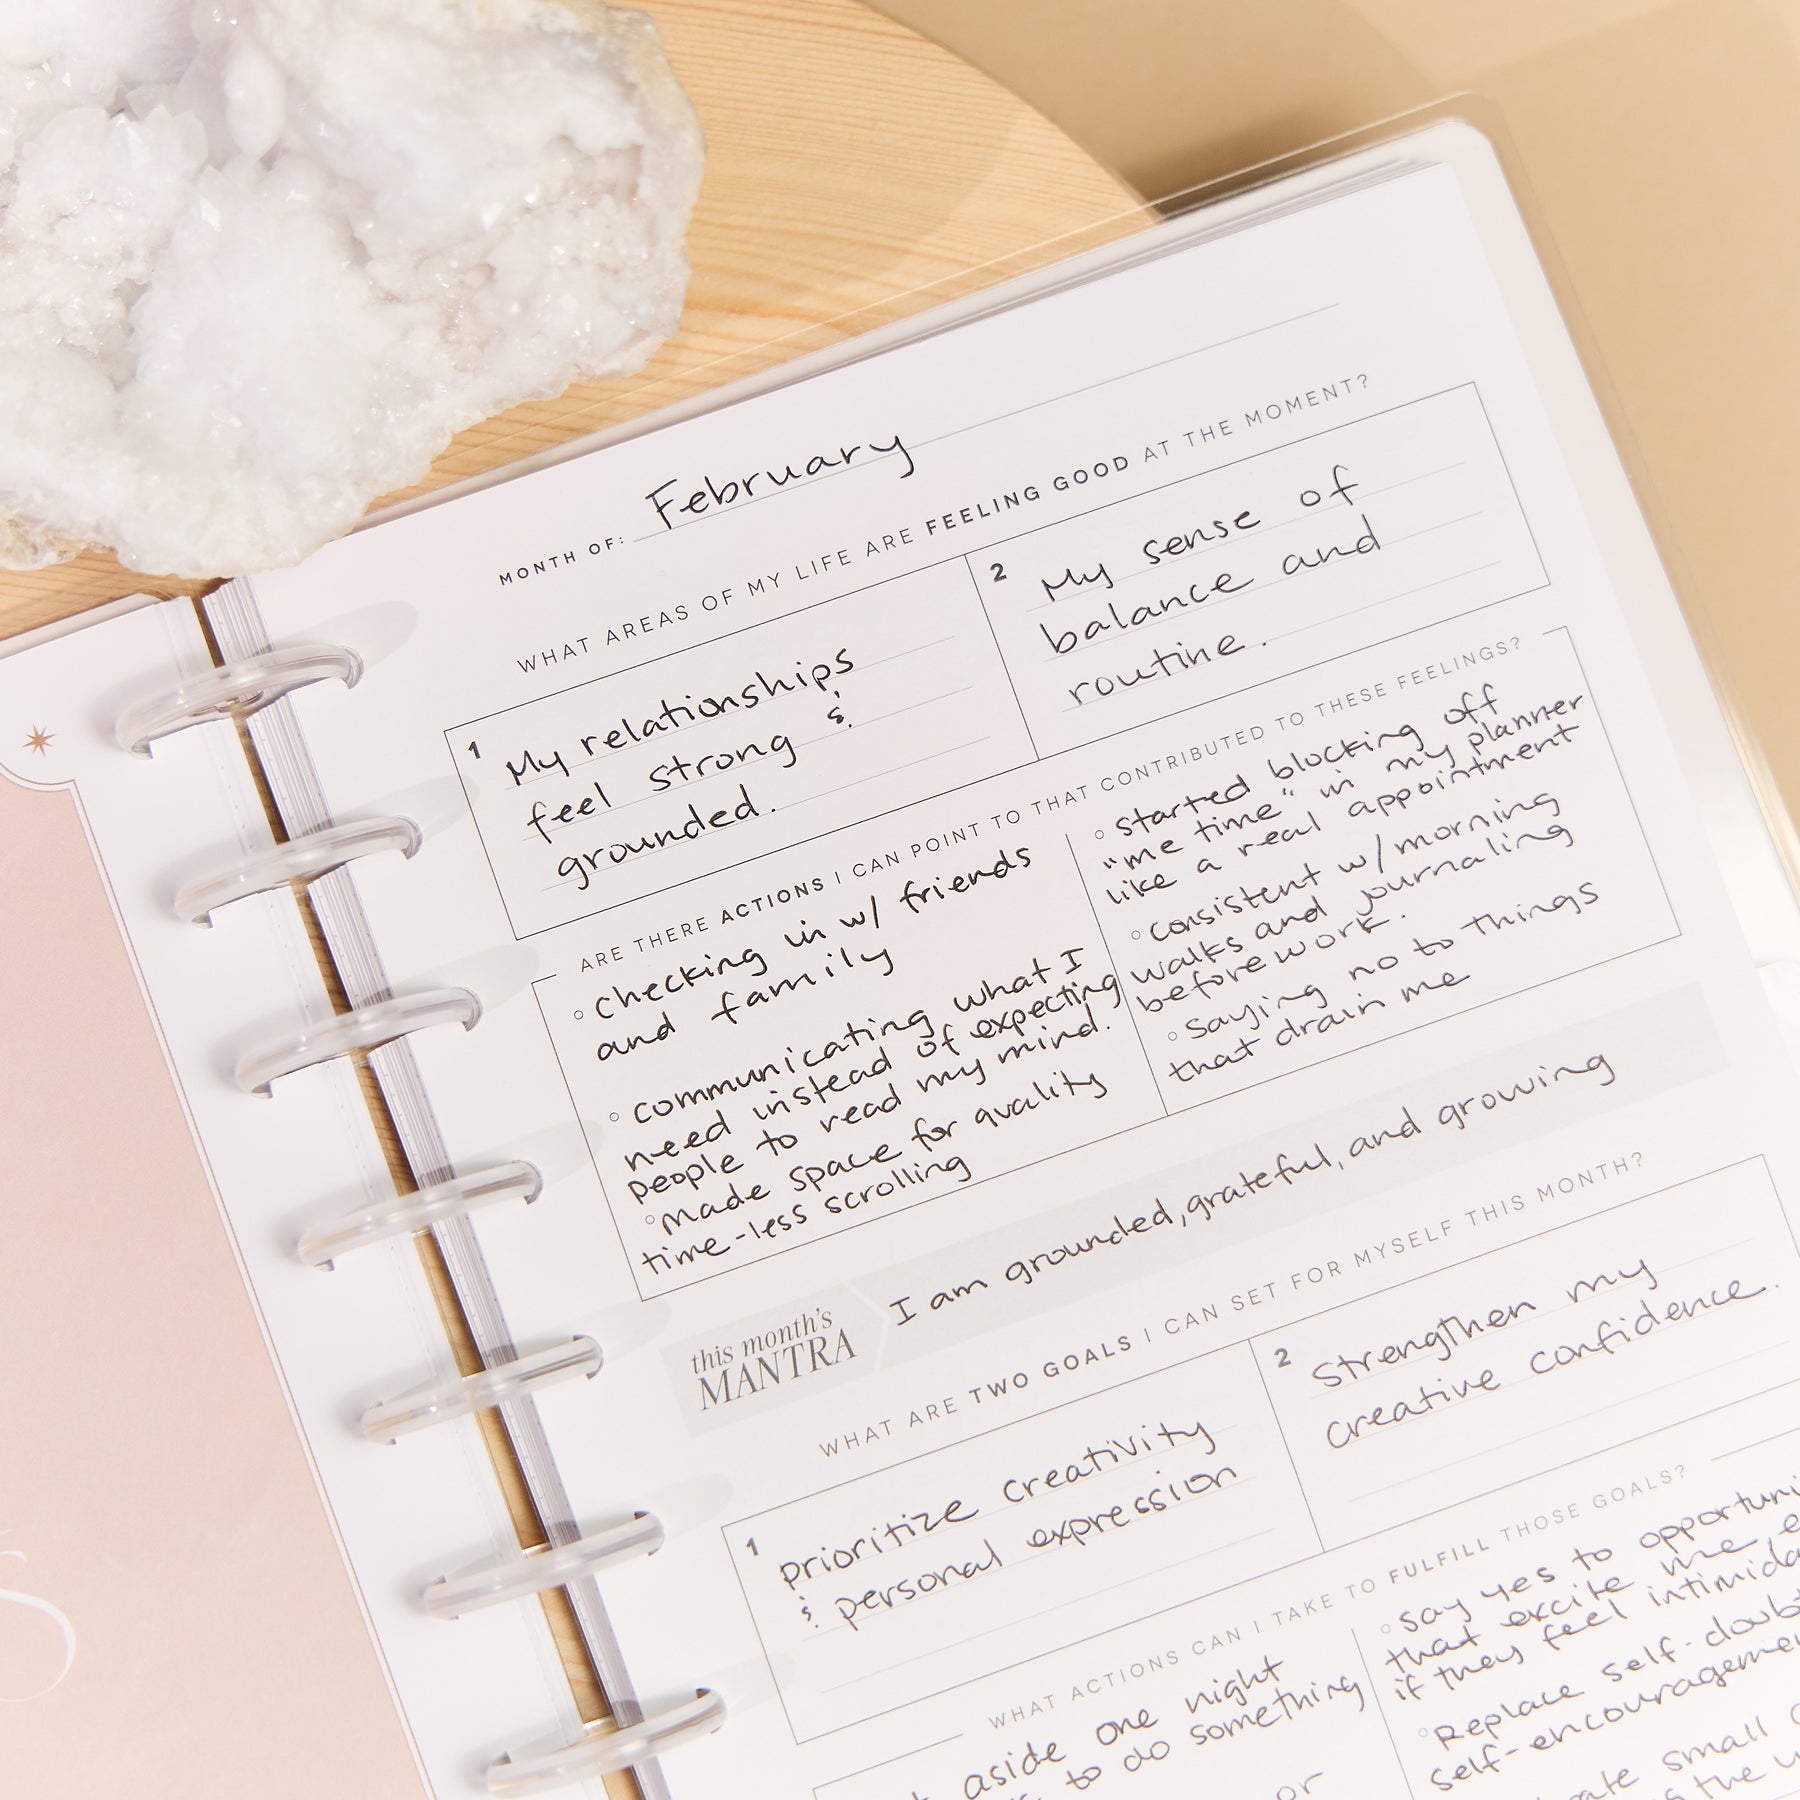 MONTH OF: February
WHAT AREAS OF MY LIFE ARE FEELING GOOD AT THE MOMENT?
1
My relationships
feel strong &
grounded.
2
My sense of
balance and
routine.
ARE THERE ACTIONS I CAN POINT TO THAT CONTRIBUTED TO THESE FEELINGS?
◦ checking in w/ friends
and family
◦ communicating what I
need instead of expecting
people to read my mind.
◦ made space for quality
time-less scrolling
◦ started blocking off
"me time" in my planner
like a real appointment
◦ consistent w/ morning
walks and journaling
before work.
◦ saying no to things
that drain me
this month's
MANTRA
I am grounded, grateful, and growing
WHAT ARE TWO GOALS I CAN SET FOR MYSELF THIS MONTH?
1
prioritize creativity
& personal expression
2
Strengthen my
creative confidence.
WHAT ACTIONS CAN I TAKE TO FULFILL THOSE GOALS?
aside one night
to do something
or
◦ say yes to opportuni
that excite me e
if they feel intimida
◦ Replace self-doubt
self-encouragemen
small
the